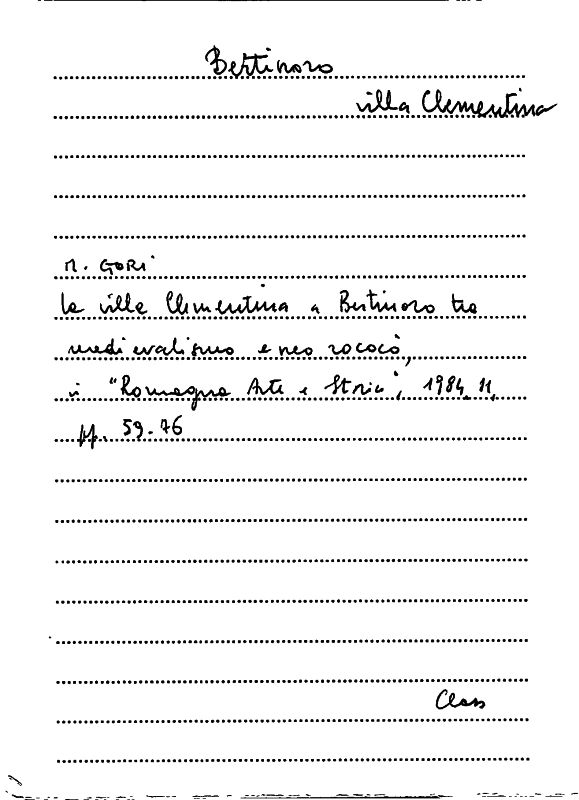 Bertinoro
villa Clementina
M. GORI
la villa Clementina a Bertinoro tra
medievalismo e neo rococò,
in "Romagna Arte e Storia", 1984, 11,
pp. 59-76
Class